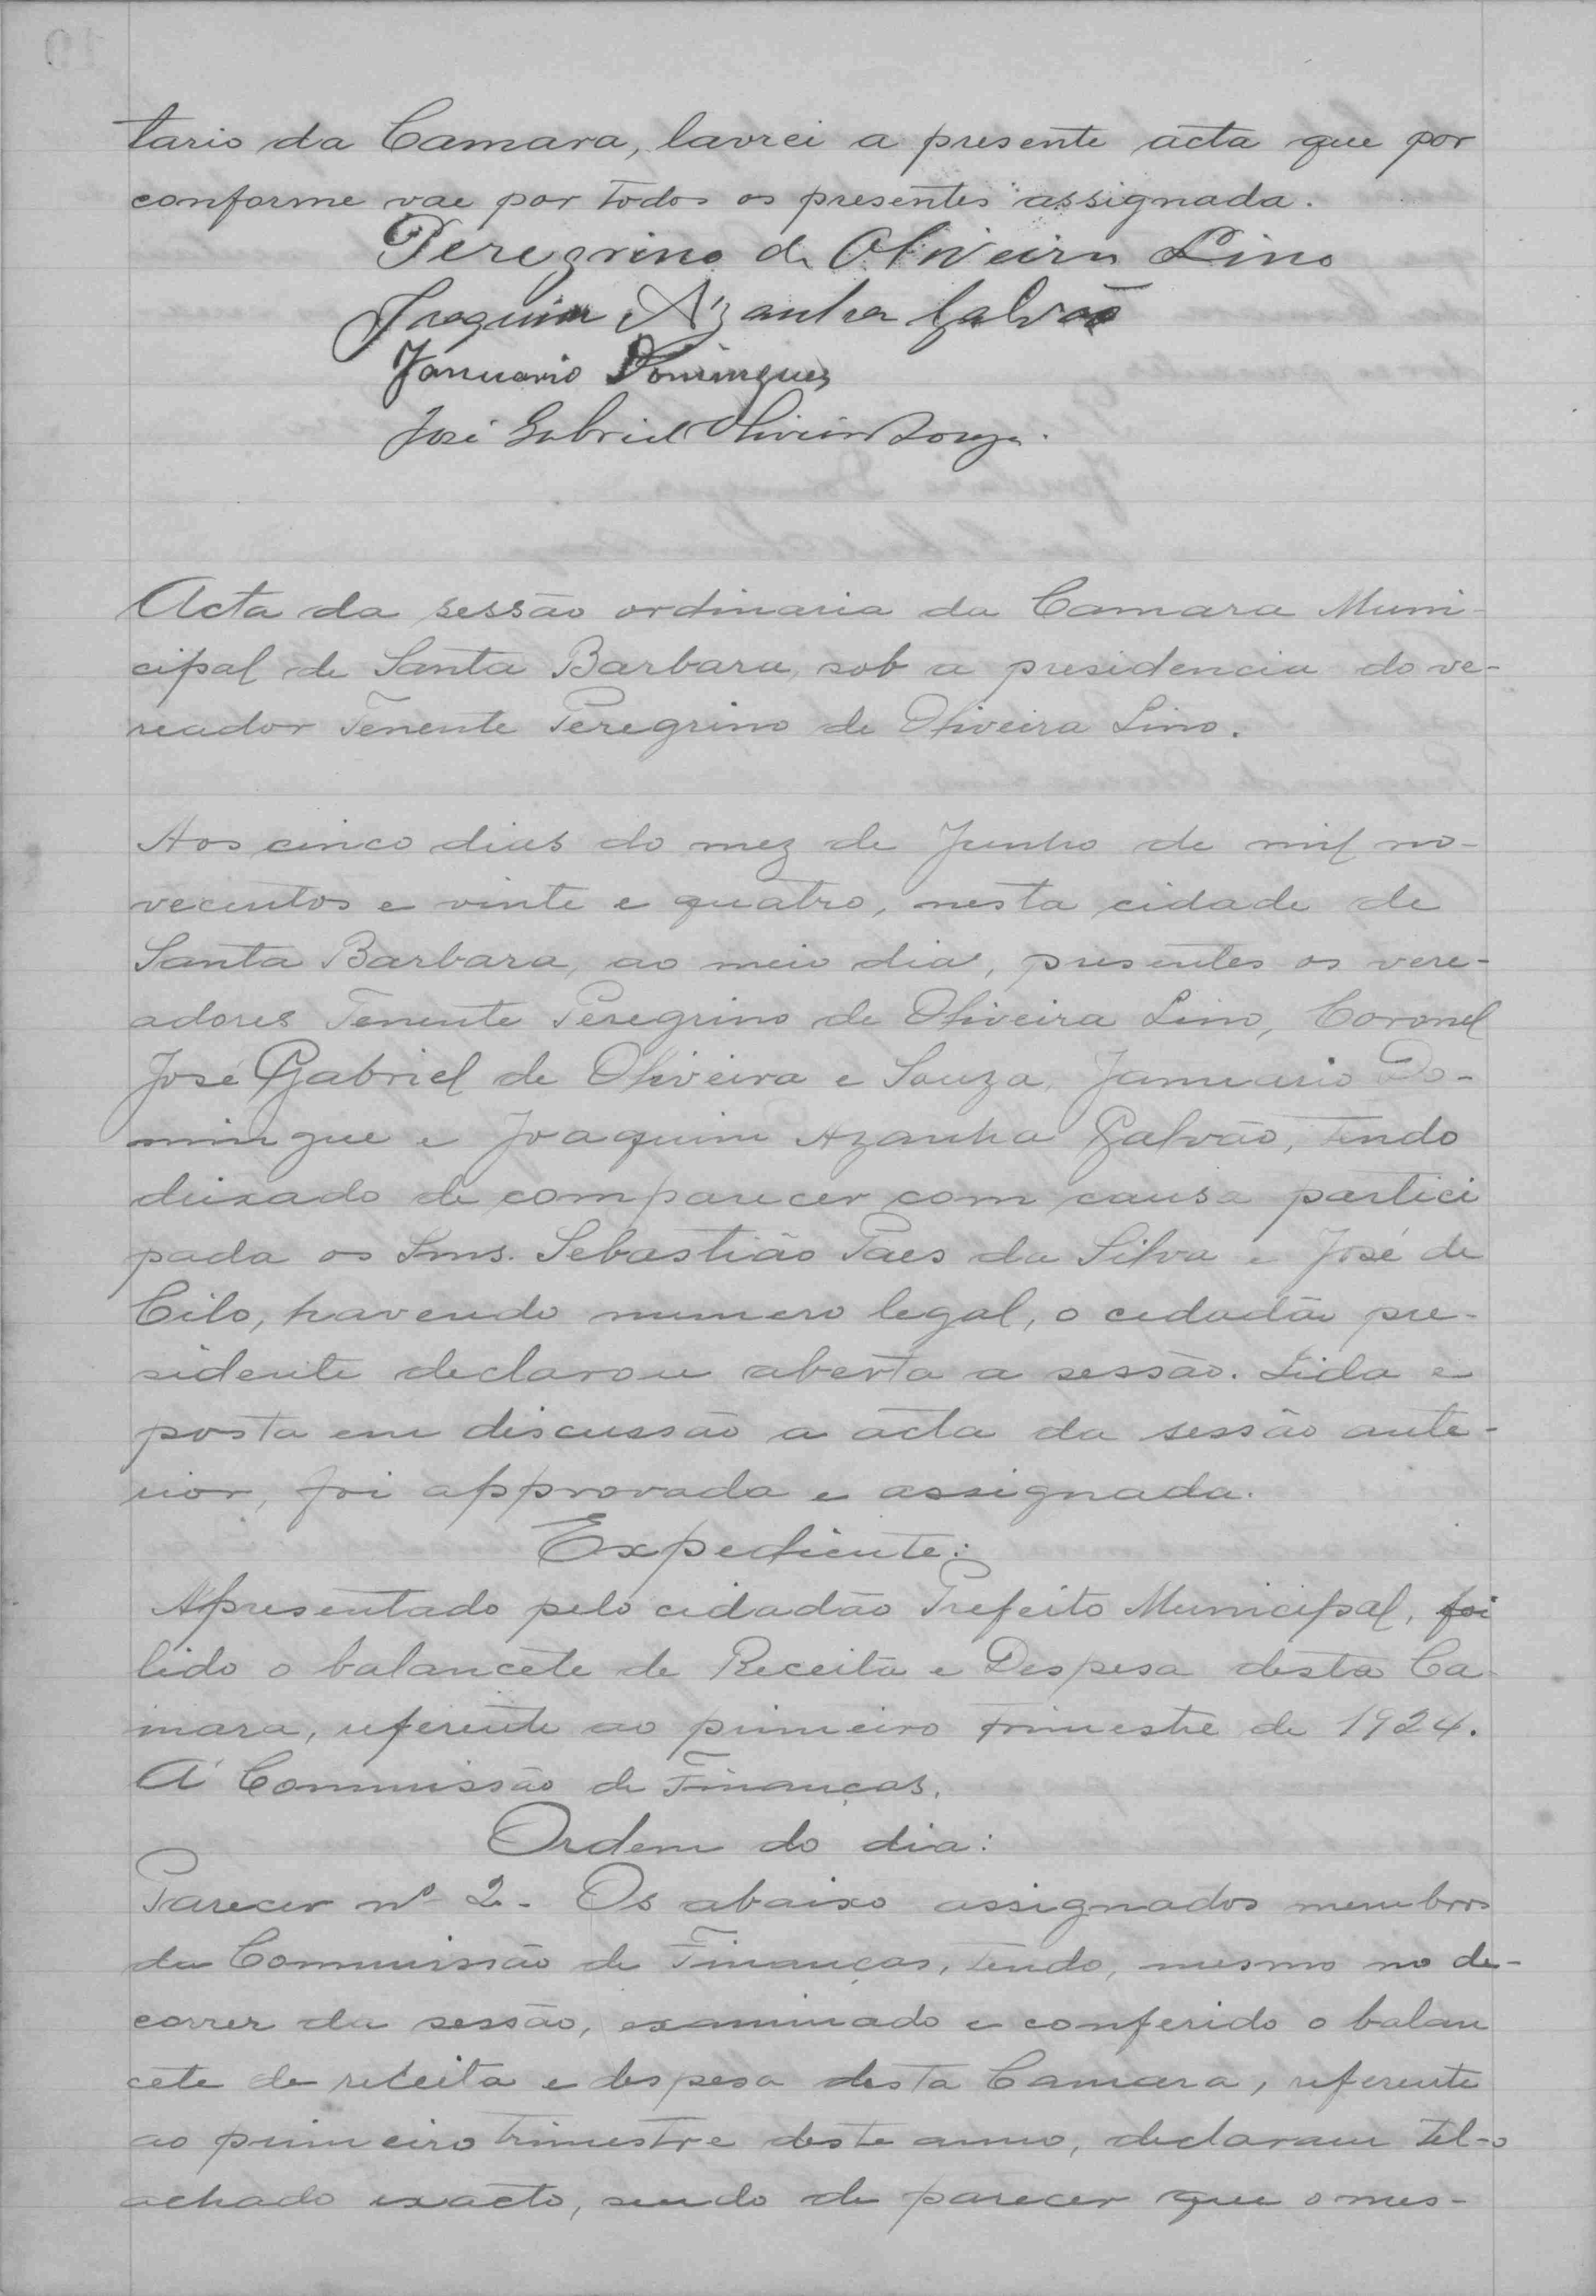 tario da Camara, lavrei a presente acta que por
conforme vae por todos os presentes assignada.
Peregrino de Oliveira Lino
Joaquim Azanha Galvão
Januario Domingues
José Gabriel Oliveira Souza.
Acta da sessão ordinaria da Camara Muni-
cipal de Santa Barbara, sob a presidencia do ve-
reador Tenente Peregrino de Oliveira Lino.
Aos cinco dias do mez de Junho de mil no-
vecentos e vinte e quatro, nesta cidade de
Santa Barbara, ao meio dia, presentes os vere-
adores Tenente Peregrino de Oliveira Lino, Coronel
José Gabriel de Oliveira e Souza, Januario Do-
mingue e Joaquim Azanha Galvão, tendo
deixado de comparecer com causa partici
pada os Snrs. Sebastião Paes da Silva e José de
Cilo, havendo numero legal, o cidadão pre-
sidente declarou aberta a sessão. Lida e
posta em discussão a acta da sessão ante-
rior, foi approvada e assignada.
Expediente:
Apresentado pelo cidadão Prefeito Municipal, foi
lido o balancete de Receita e Despesa desta Ca-
mara, referente ao primeiro trimestre de 1924.
Á Commissão de Finanças.
Ordem do dia:
Parecer nº 2. Os abaixo assignados membros
da Commissão de Finanças, tendo, mesmo no de-
correr da sessão, examinado e conferido o balan
cete de receita e despesa desta Camara, referente
ao primeiro trimestre deste anno, declaram tel-o
achado exacto, sendo de parecer que o mes-